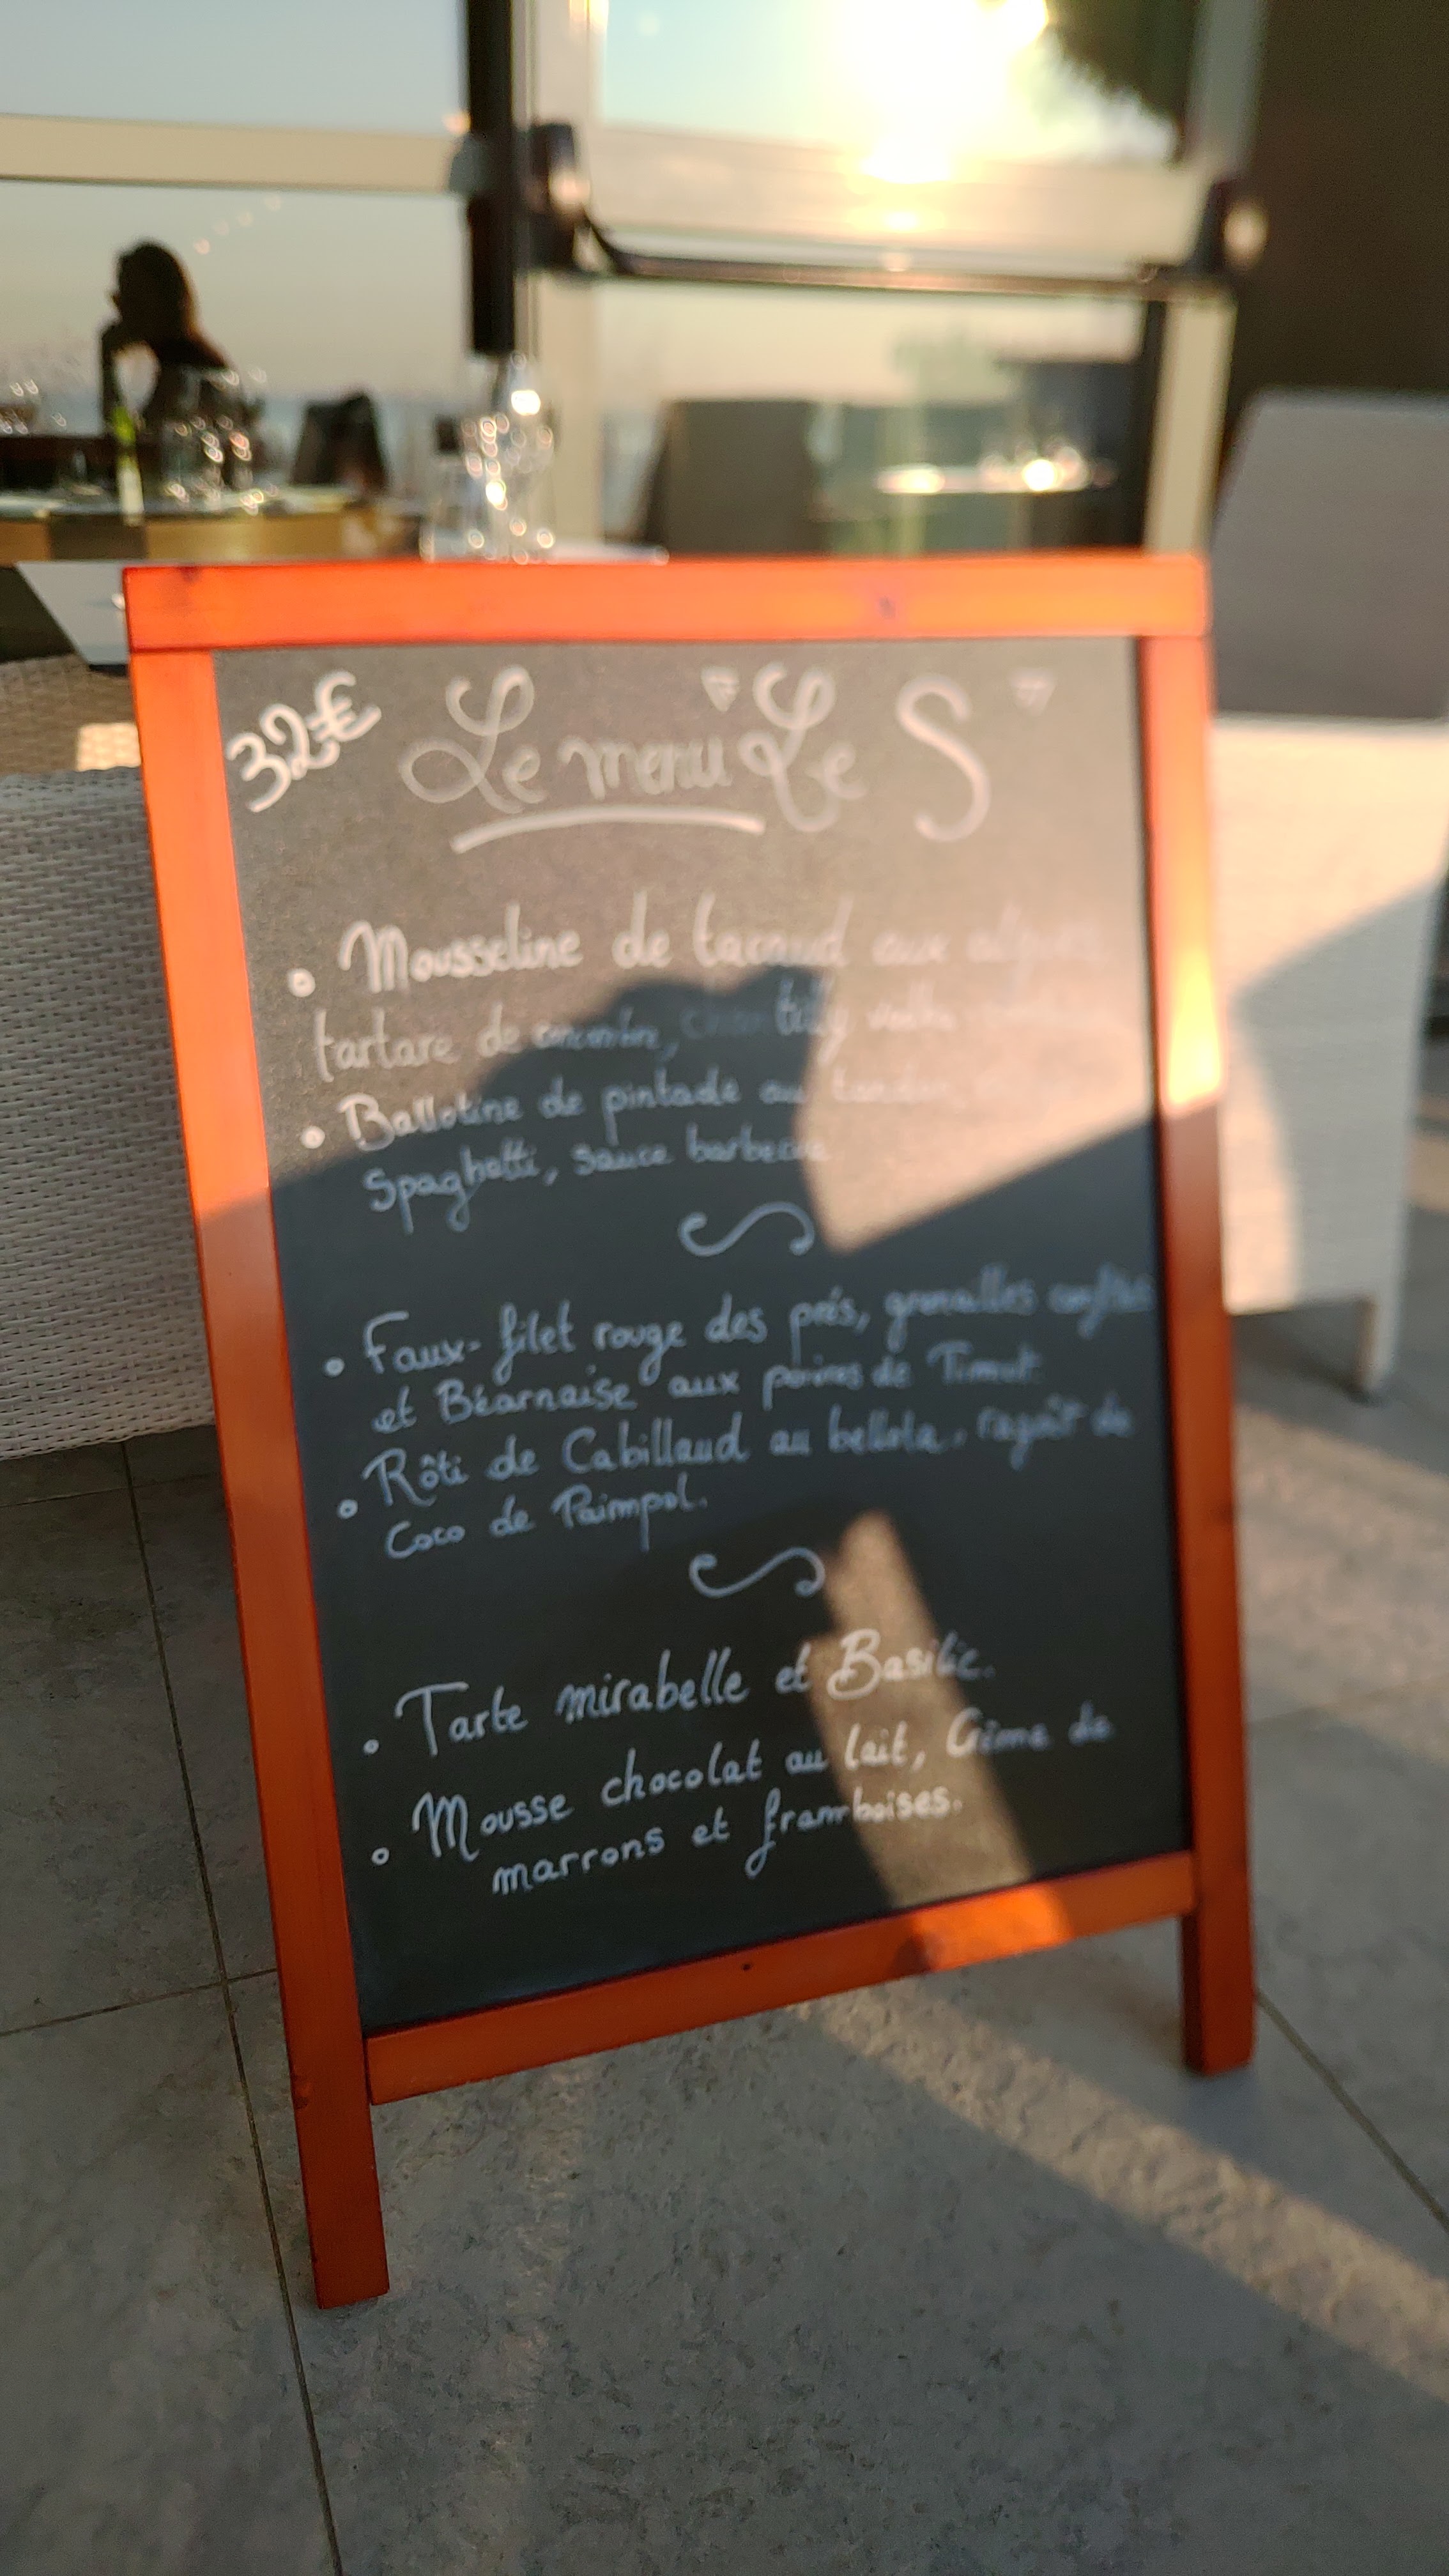 32€ Le menu "Le S"
• Mousseline de tacaud aux algues
tartare de concombre,
• Ballotine de pintade au
Spaghetti, sauce barbecue
• Faux-filet rouge des prés, grenailles confites
et Béarnaise aux poivres de Timut.
• Rôti de Cabillaud au bellota, ragoût de
Coco de Paimpol.
• Tarte mirabelle et Basilic.
• Mousse chocolat au lait, Crème de
marrons et framboises.